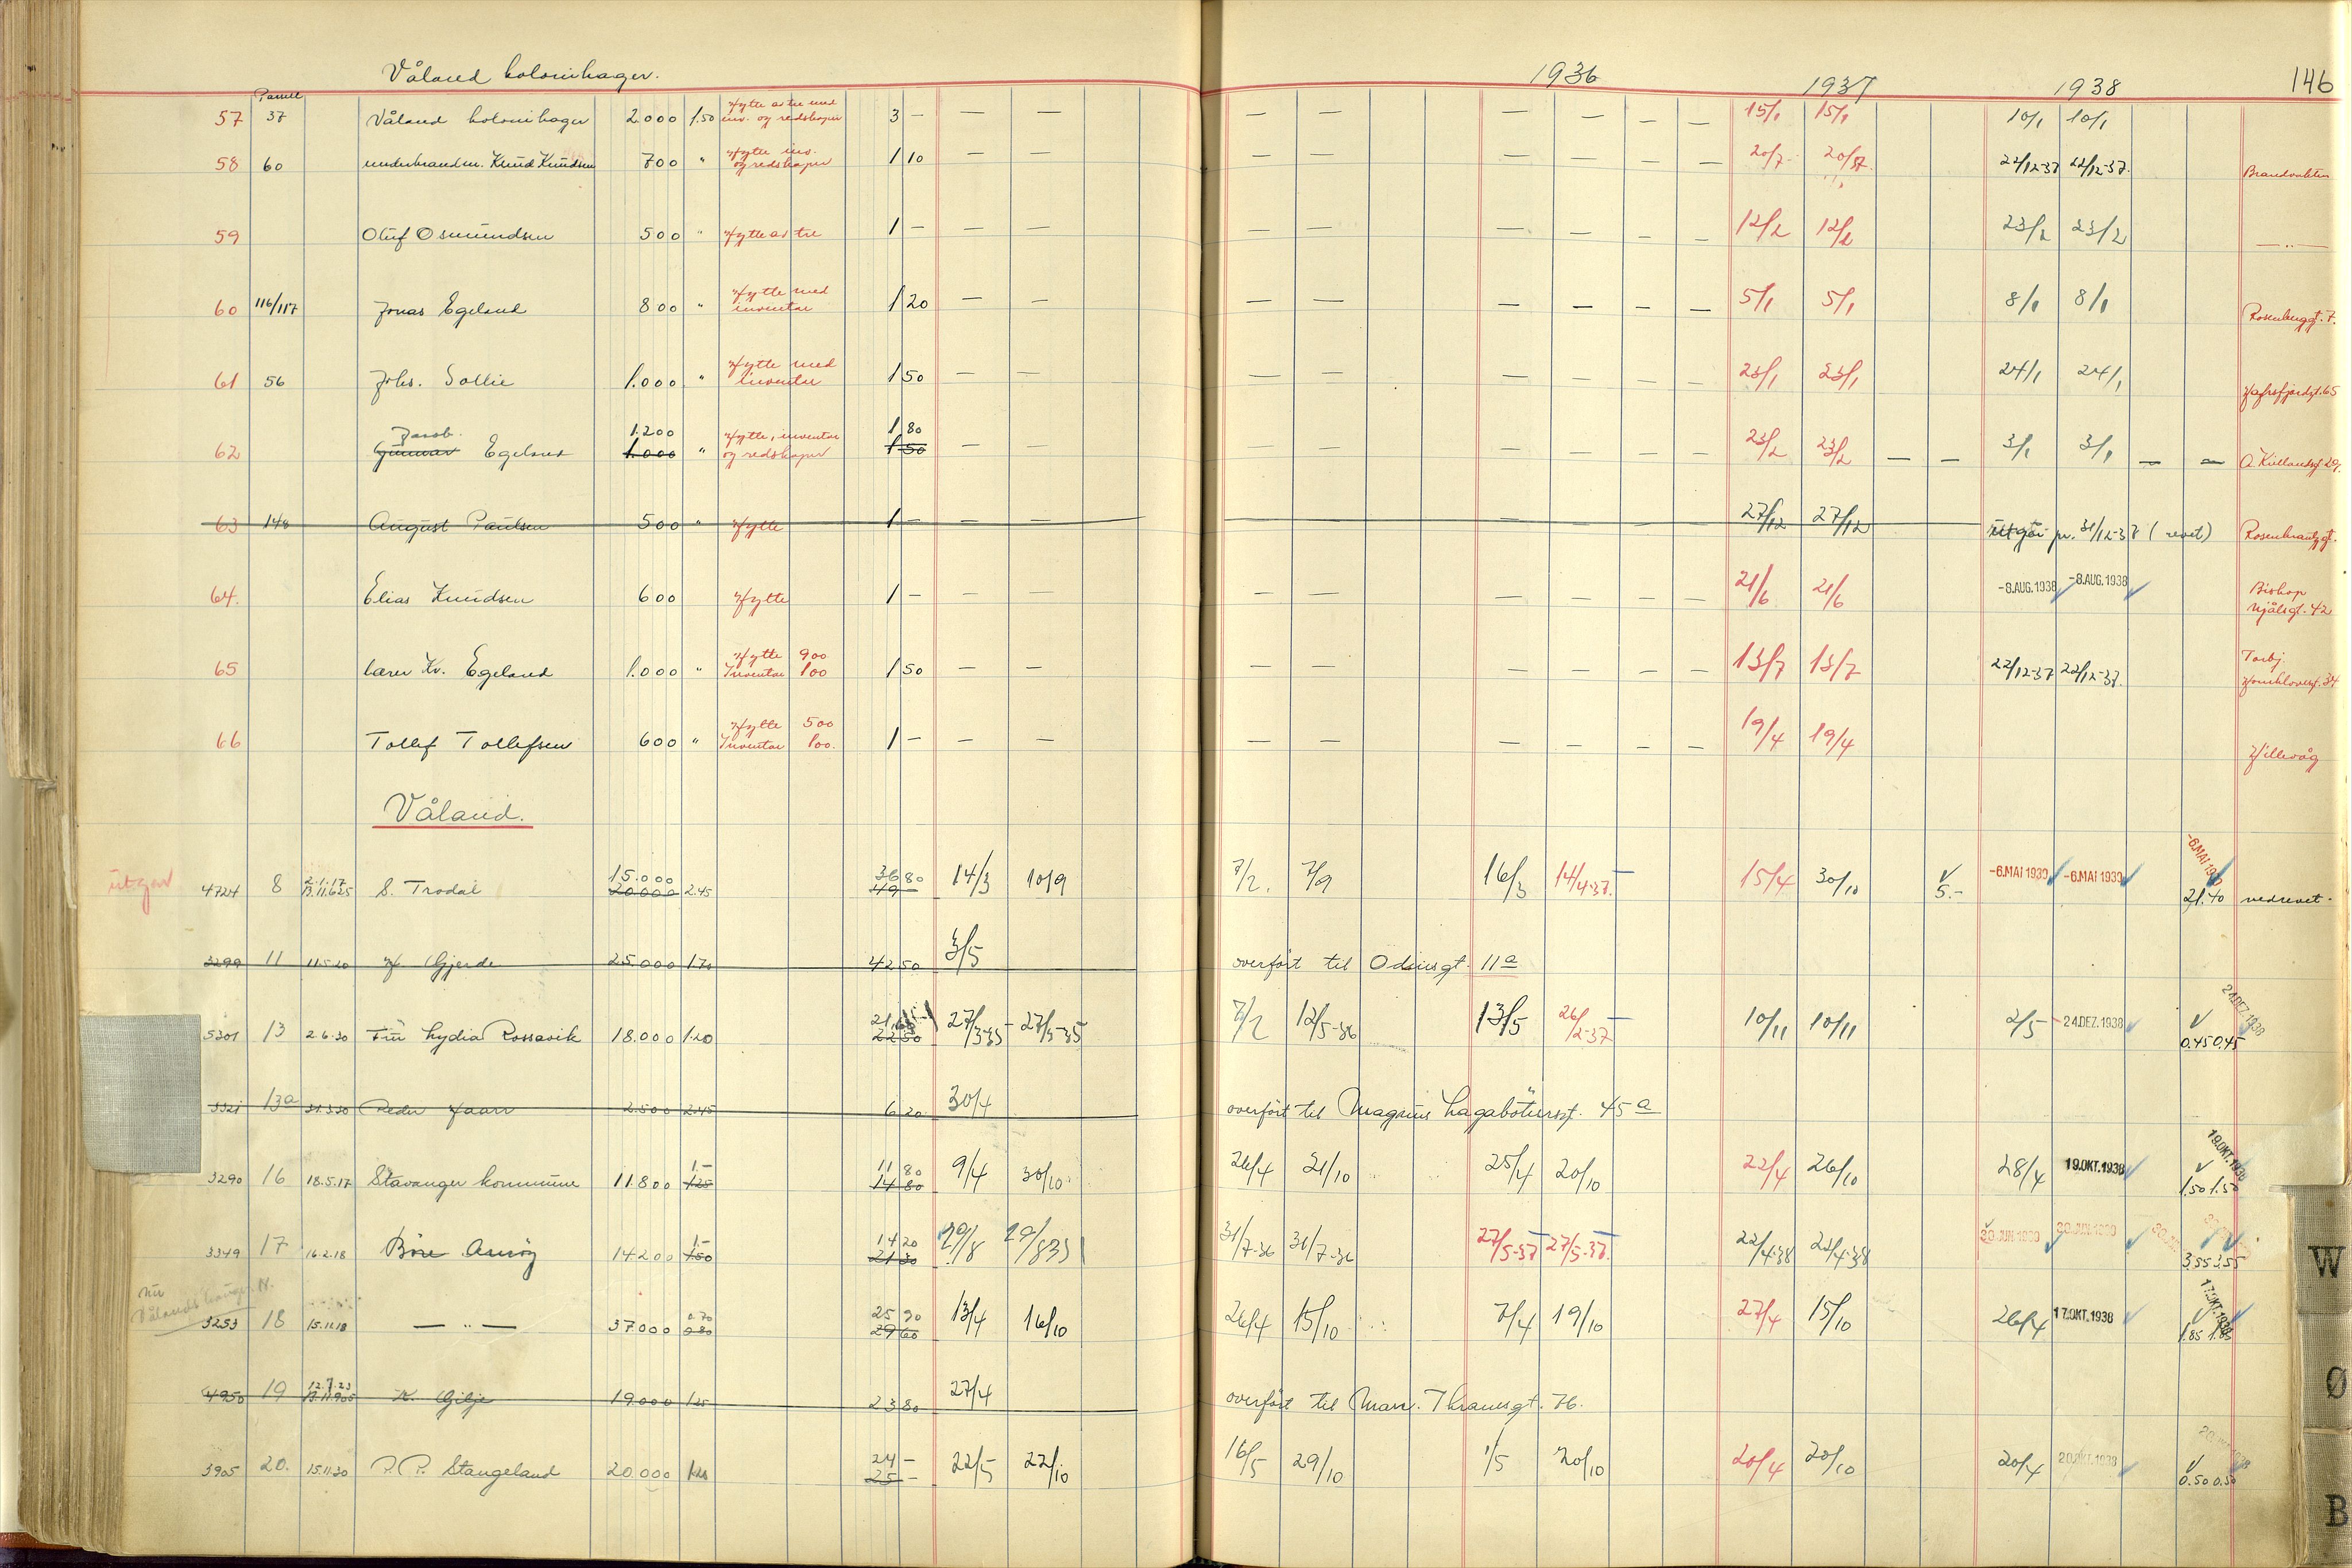 Våland kolonihager. 1936 1937 1938 146
Parsell
57 37 Våland kolonihager 2.000 1.50 Hytte av tre med inv. og redskaper 3 — — — — — — — — — 15/1 15/1 10/1 10/1
58 60 underbrandm. Knud Knudsen 700 " Hytte inv. og redskaper 1 10 — — — — — — — — 20/7 20/7 22/12-37 22/12-37. Brandvakten
59 Oluf Osmundsen 500 " Hytte av tre 1 — — — — — — — — — 12/2 12/2 23/2 23/2 — " —
60 116/117 Jonas Egeland 800 " Hytte med inventar 1 20 — — — — — — — — 5/1 5/1 8/1 8/1 Rosenberggt. 7.
61 56 Johs. Sollie 1.000 " Hytte med inventar 1 50 — — — — — — — — 23/1 23/1 24/1 24/1 Hafrsfjordgt. 65
62 Jacob. Gunnar Egeland 1.200 1.000 " Hytte, inventar og redskaper 1 80 1 50 — — — — — — — — 23/2 23/2 — — 3/1 3/1 — — A. Kiellandsgt. 20.
63 148 August Paulsen 500 " Hytte 1 — — — — 27/12 27/12 utgår pr. 31/12-38 (revet) Rosenkrantzgt.
64. Elias Knudsen 600 Hytte 1 — — — — — — — — — 21/6 21/6 -8.AUG.1938 -8.AUG.1938 Bishop Njålsgt. 42
65 lærer Kr. Egeland 1.000 " Hytte 900 Inventar 100 1 50 — — — — — — — — 13/7 13/7 22/12-37 22/12-37. Torbj. Hornklovesgt. 34
66 Tollef Tollefsen 600 " Hytte 500 Inventar 100. 1 — — — — — — — — — 19/4 19/4 Hillevåg
Våland.
utgår 4724 8 2.1.17 13.11.625 S. Trodal 15.000 20.000 2.45 36 80 49 — 14/3 10/9 7/2. 7/9 16/3 14/4-37. 15/4 30/10 5.- -6.MAI 1939 -6.MAI 1939 -6.MAI 1939 21.40 nedrevet.
3299 11 11.5.20 H Gjerde 25.000 1.70 42 50 3/5 overført til Odinsgt. 11a
5301 13 2.6.30 Fru Lydia Rossavik 18.000 1.20 21.60 22 50 27/3-35 - 27/3-35 7/2 12/5-36 13/5 26/2-37 10/11 10/11 2/5 -24.DEZ.1938 24.DEZ.1938 0.45 0.45
3321 13a 31.3.30 Peder Haarr 2.500 2.45 6 20 30/4 overført til Magnus Lagabøtersgt. 45a
3290 16 18.5.17 Stavanger kommune 11.800 1.— 1.25 11 80 14 80 9/4 30/10 26/4 31/10 25/4 20/10 22/4 26/10 28/4 19.OKT.1938 19.OKT.1938 1.50 1.50
3349 17 16.2.18 Børe Amsøy 14.200 1.— 1.50 14 20 21 30 29/8 29/8 35 31/7-36 31/7-36 27/5-37 27/5-37. 22/4-38 22/4-38 30.JUN 1939 30.JUN.1939 3.55 3.55
nu Vålandshaugen
3253 18 15.11.18 — " — 37.000 0.70 0.80 25 90 29 60 13/4 16/10 26/4 15/10 7/4 19/10 27/4 15/10 26/4 17.OKT.1938 17.OKT.1938 1.85 1.85
4950 19 12.7.23 13.11.905 K. Gilje 19.000 1.25 23 80 27/4 overført til Marc. Thranesgt. 76.
3905 20. 15.11.30 P. P. Stangeland 20.000 1.20 24 — 25 — 22/5 22/10 16/5 29/10 1/5 20/10 20/4 20/10 20/4 20.OKT.1938 0.50 0.50
W
Ø
B